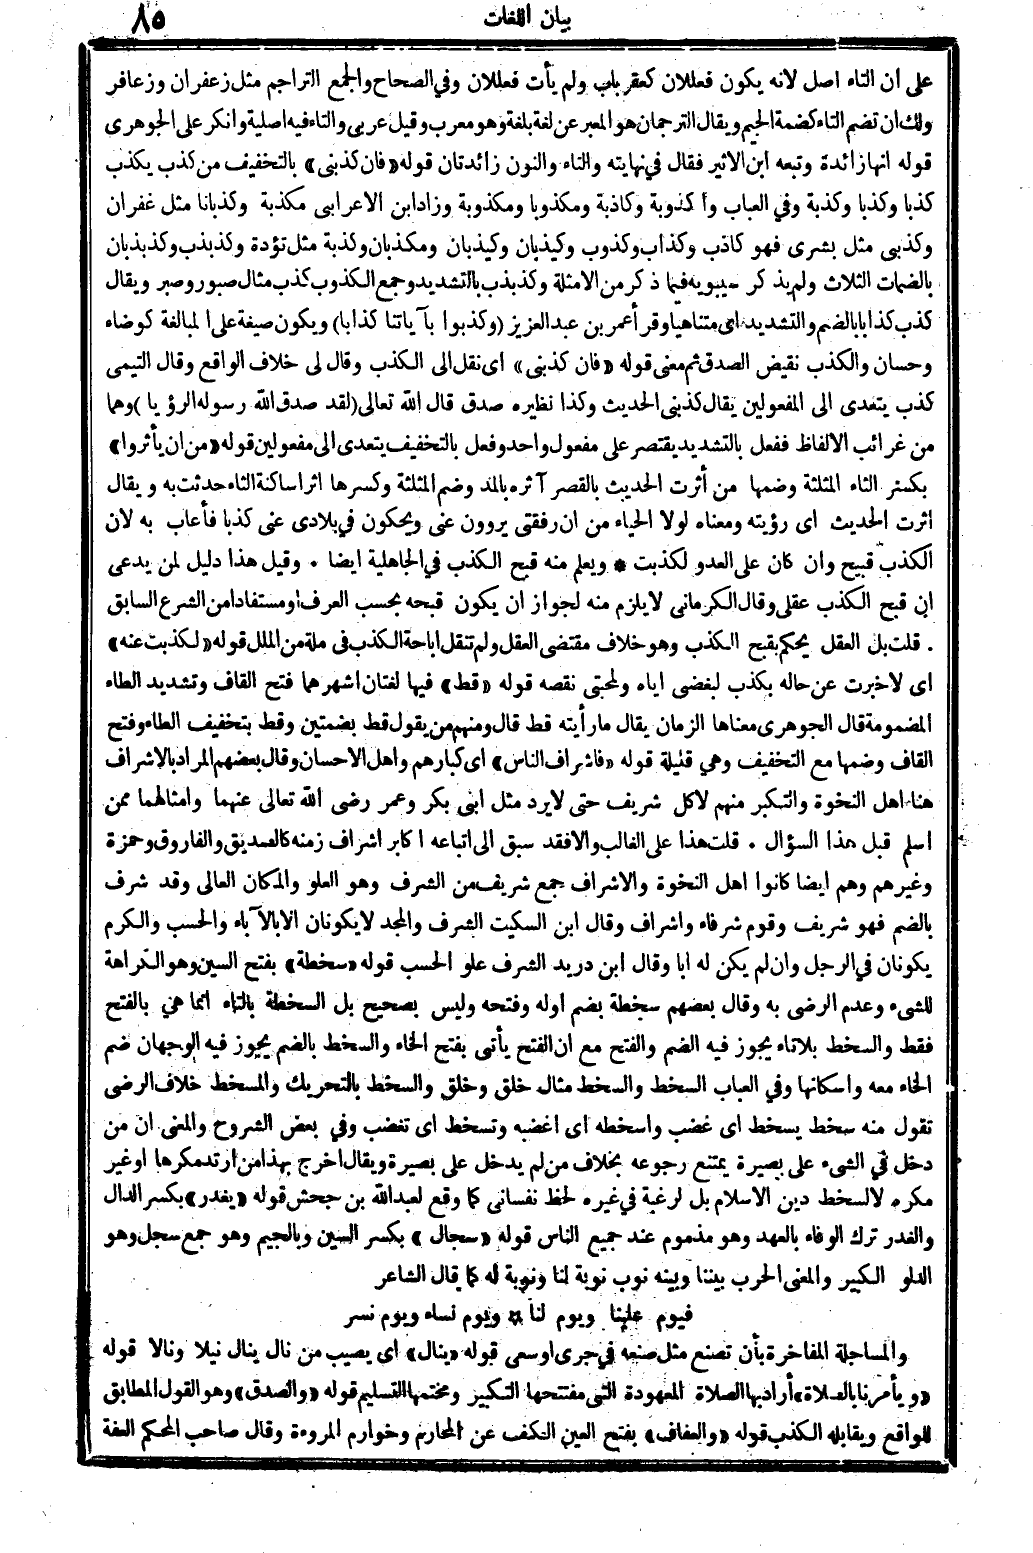 بيان اللغات ٨٥
على ان التاء اصل لانه يكون فعللان كعقربان ولم يأت فعللان وفي الصحاح والجمع التراجم مثل زعفران وزعافر
ولك ان تضم التاء كضمة الجيم ويقال الترجمان هو المعبر عن لغة بلغة وهو معرب وقيل عربي والتاء فيه اصلية وانكر على الجوهرى
قوله انها زائدة وتبعه ابن الاثير فقال في نهايته والتاء والنون زائدتان قوله «فان كذبنى» بالتخفيف من كذب يكذب
كذبا وكذبا وكذبة وفي العباب وأكذوبة وكاذبة ومكذوبا ومكذوبة وزاد ابن الاعرابى مكذبة وكذبانا مثل غفران
وكذبى مثل بشرى فهو كاذب وكذاب وكذوب وكيذبان وكيذبان ومكذبان وكذبة مثل تؤدة وكذبذب وكذبذبان
بالضمات الثلاث ولم يذكر سيبويه فيما ذكر من الامثلة وكذبذب بالتشديد وجمع الكذوب كذب مثال صبور وصبر ويقال
كذب كذابا بالضم والتشديد اى متناهيا وقرأ عمر بن عبد العزيز (وكذبوا بآياتنا كذابا) ويكون صيغة على المبالغة كوضاء
وحسان والكذب نقيض الصدق ثم معنى قوله «فان كذبنى» اى نقل الى الكذب وقال لى خلاف الواقع وقال التيمى
كذب يتعدى الى المفعولين يقال كذبنى الحديث وكذا نظيره صدق قال الله تعالى (لقد صدق الله رسوله الرؤيا) وهما
من غرائب الالفاظ ففعل بالتشديد يقتصر على مفعول واحد وفعل بالتخفيف يتعدى الى مفعولين قوله «من ان يأثروا»
بكسر الثاء المثلثة وضمها من أثرت الحديث بالقصر آثره بالمد وضم المثلثة وكسرها اثرا ساكنة الثاء حدثت به ويقال
اثرت الحديث اى رؤيته ومعناه لولا الحياء من ان رفقتى يروون عنى ويحكون في بلادى عنى كذبا فأعاب به لان
الكذب قبيح وان كان على العدو لكذبت * ويعلم منه قبح الكذب في الجاهلية ايضا . وقيل هذا دليل لمن يدعى
ان قبح الكذب عقلى وقال الكرمانى لا يلزم منه لجواز ان يكون قبحه بحسب العرف او مستفادا من الشرع السابق
. قلت بل العقل يحكم بقبح الكذب وهو خلاف مقتضى العقل ولم تنقل اباحة الكذب فى ملة من الملل قوله «لكذبت عنه»
اى لاخبرت عن حاله بكذب لبغضى اياه ولمحبتى نقصه قوله «قط» فيها لغتان اشهرهما فتح القاف وتشديد الطاء
المضمومة قال الجوهرى معناها الزمان يقال ما رأيته قط قال ومنهم من يقول قط بضمتين وقط بتخفيف الطاء وفتح
القاف وضمها مع التخفيف وهي قليلة قوله «فاشراف الناس» اى كبارهم واهل الاحسان وقال بعضهم المراد بالاشراف
هنا اهل النخوة والتكبر منهم لا كل شريف حتى لا يرد مثل ابى بكر وعمر رضى الله تعالى عنهما وامثالهما ممن
اسلم قبل هذا السؤال . قلت هذا على الغالب والافقد سبق الى اتباعه اكابر اشراف زمنه كالصديق والفاروق وحمزة
وغيرهم وهم ايضا كانوا اهل النخوة والاشراف جمع شريف من الشرف وهو العلو والمكان العالى وقد شرف
بالضم فهو شريف وقوم شرفاء واشراف وقال ابن السكيت الشرف والمجد لا يكونان الا بالآباء والحسب والكرم
يكونان في الرجل وان لم يكن له ابا وقال ابن دريد الشرف علو الحسب قوله «سخطة» بفتح السين وهو الكراهة
للشىء وعدم الرضى به وقال بعضهم سخطة بضم اوله وفتحه وليس بصحيح بل السخطة بالتاء انما هي بالفتح
فقط والسخط بلا تاء يجوز فيه الضم والفتح مع ان الفتح يأتى بفتح الخاء والسخط بالضم يجوز فيه الوجهان ضم
الخاء معه واسكانها وفي العباب السخط والسخط مثال خلق وخلق والسخط بالتحريك والمسخط خلاف الرضى
تقول منه سخط يسخط اى غضب واسخطه اى اغضبه وتسخط اى تغضب وفي بعض الشروح والمعنى ان من
دخل في الشىء على بصيرة يمتنع رجوعه بخلاف من لم يدخل على بصيرة ويقال اخرج بهذا من ارتد مكرها او غير
مكره لا لسخط دين الاسلام بل لرغبة في غيره لحظ نفسانى كما وقع لعبد الله بن جحش قوله «يغدر» بكسر الدال
والغدر ترك الوفاء بالعهد وهو مذموم عند جميع الناس قوله «سجال» بكسر السين وبالجيم وهو جمع سجل وهو
الدلو الكبير والمعنى الحرب بيننا وبينه نوب نوبة لنا ونوبة له كما قال الشاعر
فيوم علينا ويوم لنا * ويوم نساء ويوم نسر
والمساجلة المفاخرة بأن تصنع مثل صنعه في جرى او سعى قوله «ينال» اى يصيب من نال ينال نيلا ونالا قوله
«ويأمرنا بالصلاة» أراد بها الصلاة المعهودة التى مفتتحها التكبير ومختتمها التسليم قوله «والصدق» وهو القول المطابق
للواقع ويقابله الكذب قوله «والعفاف» بفتح العين الكف عن المحارم وخوارم المروءة وقال صاحب المحكم العفة